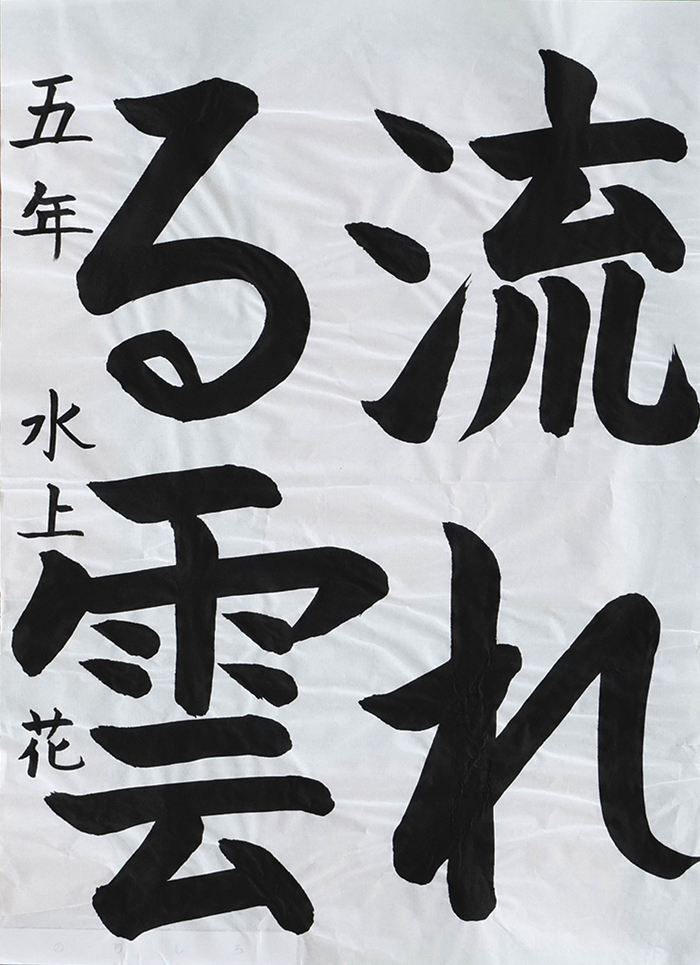 流れ
る雲
五年 水上 花